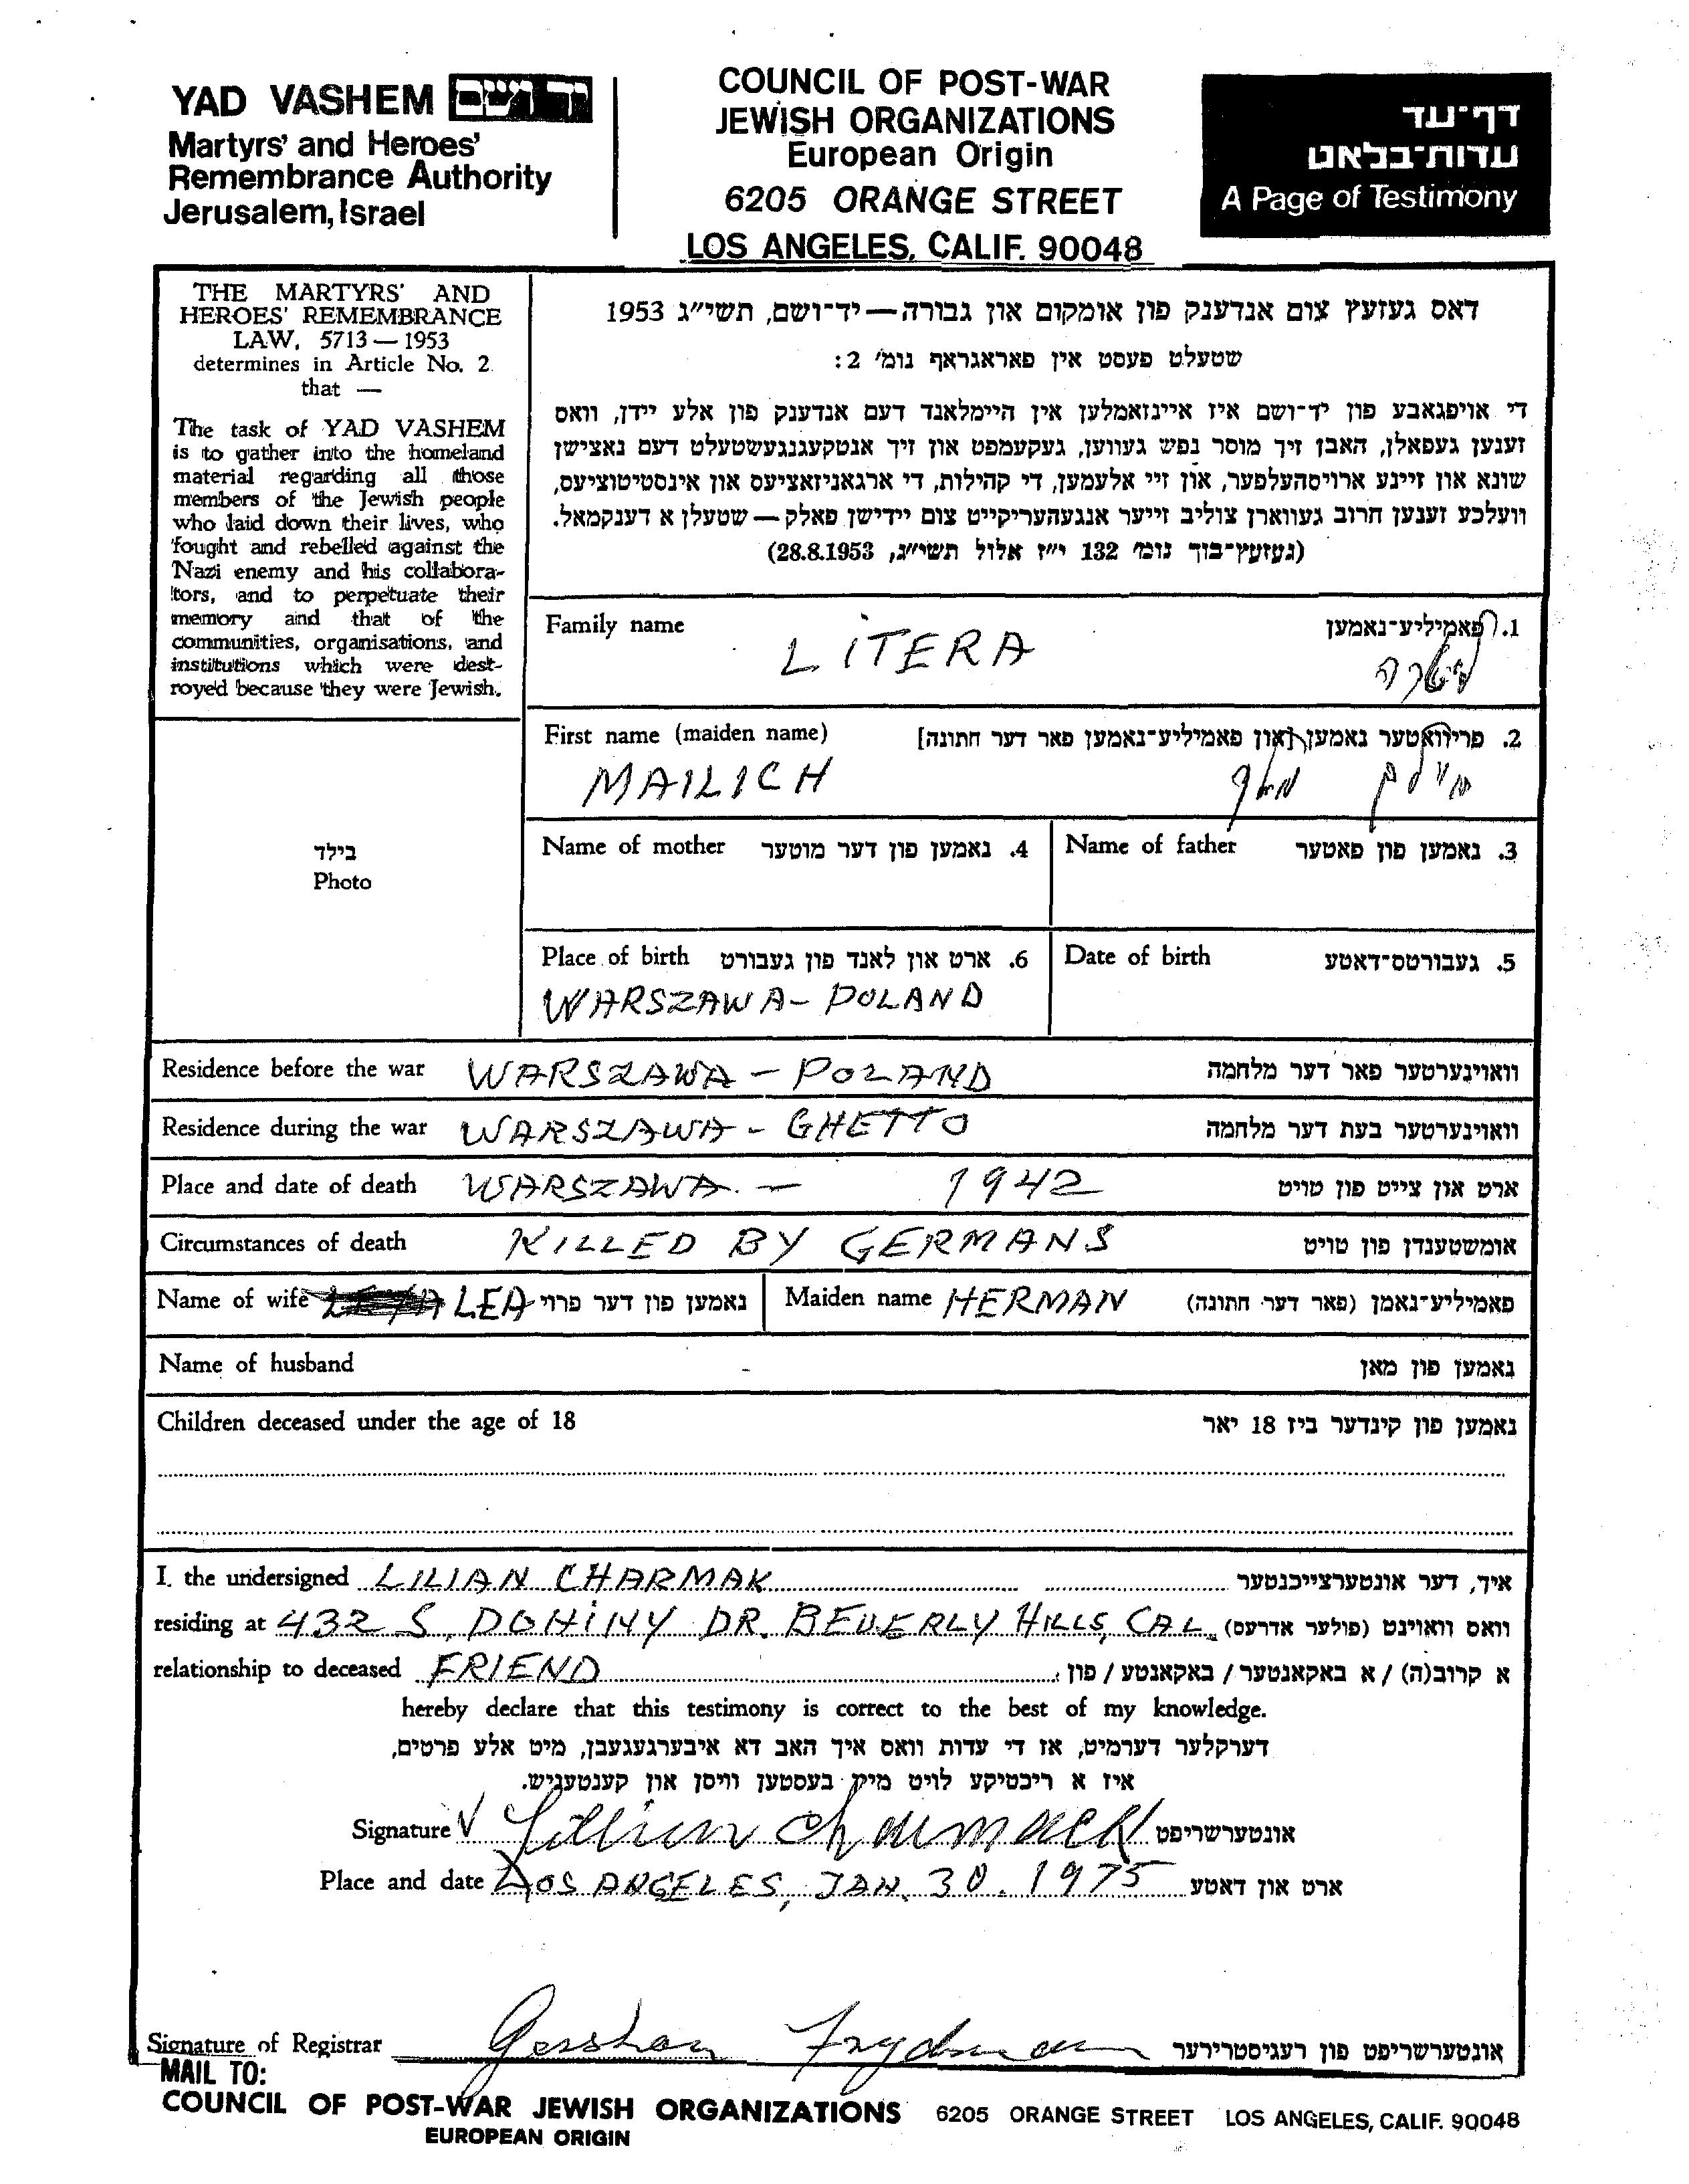 YAD VASHEM יד ושם
Martyrs' and Heroes'
Remembrance Authority
Jerusalem, Israel
COUNCIL OF POST-WAR
JEWISH ORGANIZATIONS
European Origin
6205 ORANGE STREET
LOS ANGELES, CALIF. 90048
דף-עד
עדות-בלאט
A Page of Testimony
THE MARTYRS' AND
HEROES' REMEMBRANCE
LAW, 5713 — 1953
determines in Article No. 2
that —
The task of YAD VASHEM
is to gather into the homeland
material regarding all those
members of the Jewish people
who laid down their lives, who
fought and rebelled against the
Nazi enemy and his collabora-
tors, and to perpetuate their
memory and that of the
communities, organisations, and
institutions which were dest-
royed because they were Jewish.
דאס געזעץ צום אנדענק פון אומקום און גבורה — יד-ושם, תשי"ג 1953
שטעלט פעסט אין פאראגראף נומ' 2:
די אויפגאבע פון יד-ושם איז איינזאמלען אין היימלאנד דעם אנדענק פון אלע יידן, וואס
זענען געפאלן, האבן זיך מוסר נפש געווען, געקעמפט און זיך אנטקעגנגעשטעלט דעם נאצישן
שונא און זיינע ארויסהעלפער, און זיי אלעמען, די קהילות, די ארגאניזאציעס און אינסטיטוציעס,
וועלכע זענען חרוב געווארן צוליב זייער אנגעהעריקייט צום יידישן פאלק — שטעלן א דענקמאל.
(געזעץ-בוך נומ' 132 י"ז אלול תשי"ג, 28.8.1953)
Family name LITERA 1. פאמיליע-נאמען
ליטרה
First name (maiden name) 2. פריוואטער נאמען [און פאמיליע-נאמען פאר דער חתונה]
MAILICH
בילד
Photo
Name of mother 4. נאמען פון דער מוטער
Name of father 3. נאמען פון פאטער
Place of birth 6. ארט און לאנד פון געבורט
WARSZAWA - POLAND
Date of birth 5. געבורטס-דאטע
Residence before the war WARSZAWA - POLAND וואוינערטער פאר דער מלחמה
Residence during the war WARSZAWA - GHETTO וואוינערטער בעת דער מלחמה
Place and date of death WARSZAWA. - 1942 ארט און צייט פון טויט
Circumstances of death KILLED BY GERMANS אומשטענדן פון טויט
Name of wife LEA נאמען פון דער פרוי Maiden name HERMAN פאמיליע-נאמן (פאר דער חתונה)
Name of husband - נאמען פון מאן
Children deceased under the age of 18 נאמען פון קינדער ביז 18 יאר
I, the undersigned LILIAN CHARMAK איך, דער אונטערצייכנטער
residing at 432 S, DOHINY DR. BEVERLY HILLS, CAL. וואס וואוינט (פולער אדרעס)
relationship to deceased FRIEND א קרוב(ה) / א באקאנטער / באקאנטע / פון:
hereby declare that this testimony is correct to the best of my knowledge.
דערקלער דערמיט, אז די עדות וואס איך האב דא איבערגעגעבן, מיט אלע פרטים,
איז א ריכטיקע לויט מיין בעסטען וויסן און קענטעניש.
Signature V Lillian Charmack אונטערשריפט
Place and date LOS ANGELES, JAN. 30. 1975 ארט און דאטע
Signature of Registrar Gershon Frydman אונטערשריפט פון רעגיסטרירער
MAIL TO:
COUNCIL OF POST-WAR JEWISH ORGANIZATIONS 6205 ORANGE STREET LOS ANGELES, CALIF. 90048
EUROPEAN ORIGIN